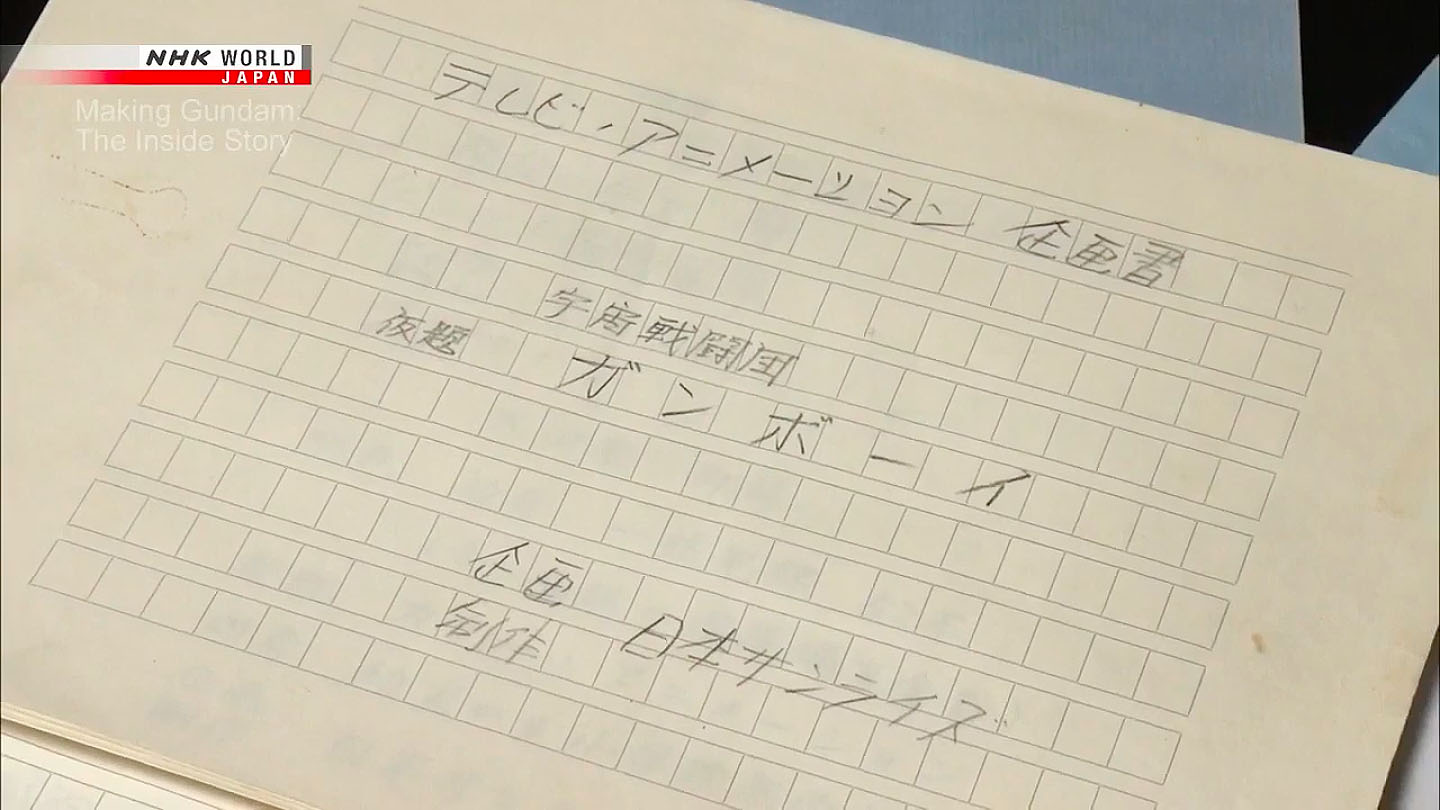 NHK WORLD
JAPAN
Making Gundam:
The Inside Story
テレビ・アニメーション 企画書
宇宙戦闘団
仮題 ガンボーイ
企画 日本サンライズ
制作